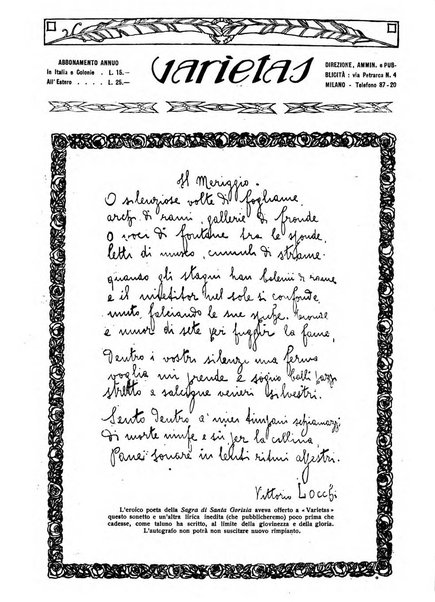 ABBONAMENTO ANNUO
In Italia e Colonie . L. 15.—
All'Estero . . . . L. 25.—
VARIETAS
DIREZIONE, AMMIN. e PUB-
BLICITÀ : via Petrarca N. 4
MILANO - Telefono 87-20
Il Meriggio.
O silenziose volte di fogliame,
archi di rami, gallerie di fronde
o voci di fontane tra le sponde,
letti di musco, cumuli di strame
quando gli stagni han baleni di rame
e il mietitor nel sole si confonde,
muto, falciando le sue spighe bionde
e muor di sete per fuggir la fame,
Dentro i vostri silenzi una ferma
voglia mi prende e sogno balli pazzi
stretto a veneri silvestri.
Sento dentro a' miei timpani schiamazzi
di morte ninfe e sù per la collina,
Pane sonare in lenti ritmi alpestri.
Vittorio Locchi
L'eroico poeta della Sagra di Santa Gorizia aveva offerto a «Varietas»
questo sonetto e un'altra lirica inedita (che pubblicheremo) poco prima che
cadesse, come taluno ha scritto, al limite della giovinezza e della gloria.
L'autografo non potrà non suscitare nuovo rimpianto.